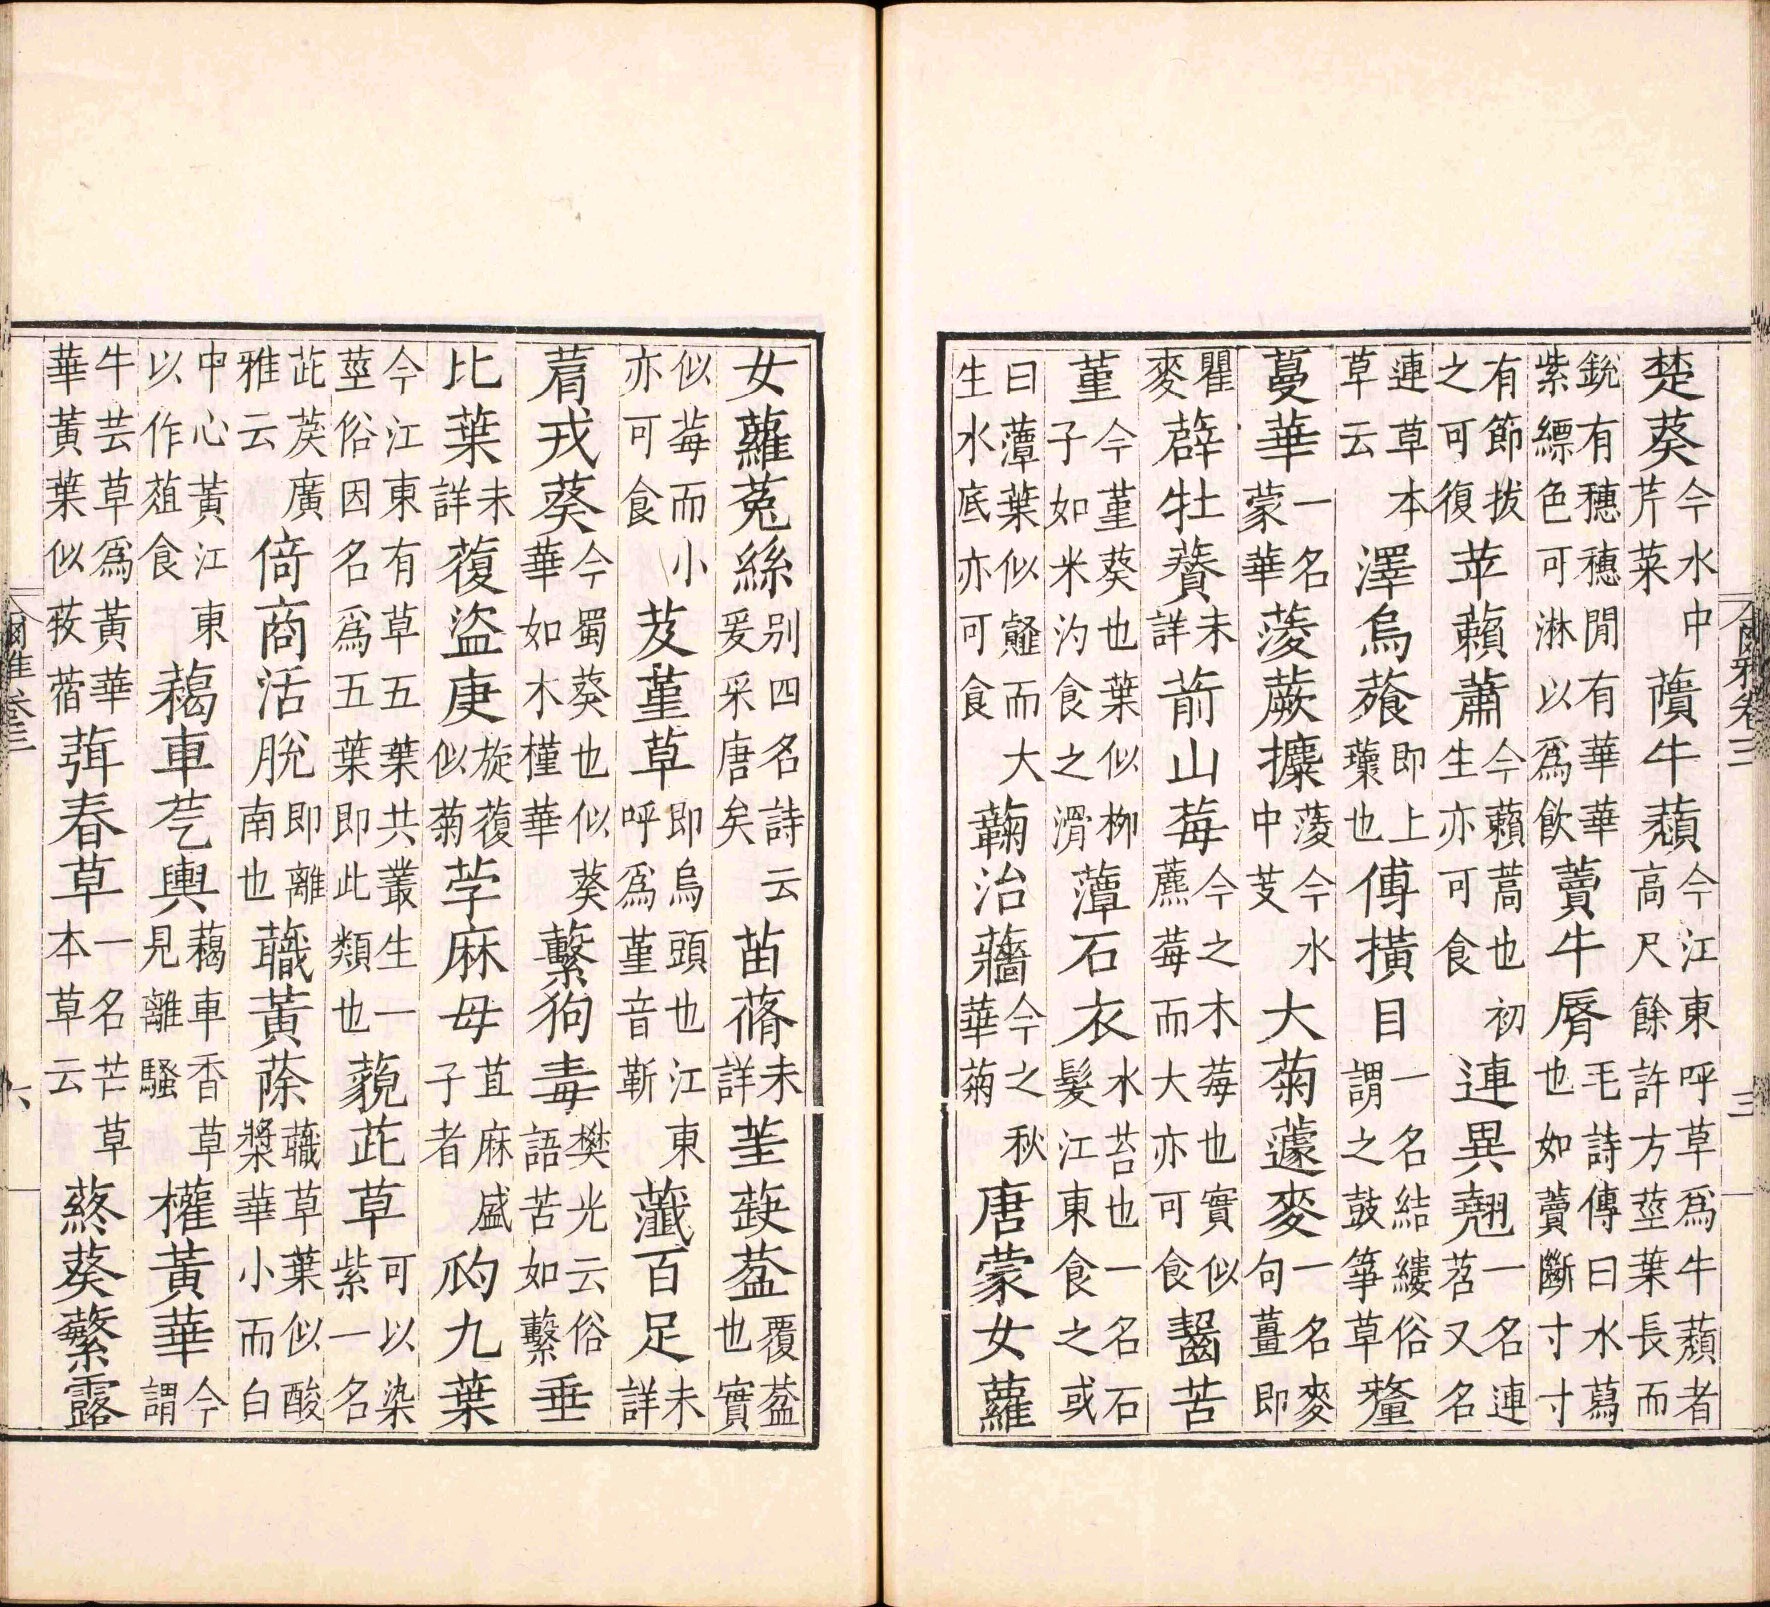 楚葵今水中芹菜藬牛蘈今江東呼草爲牛蘈者高尺餘許方莖葉長而
銳有穗穗閒有華華紫縹色可淋以爲飲藚牛脣毛詩傳曰水蕮也如藚斷寸寸
有節拔之可復苹藾蕭今藾蒿也初生亦可食連異翹一名連苕又名
連草本草云澤烏蕵即上蘾也傅橫目一名結縷俗謂之鼓箏草釐
蔓華一名蒙華蔆蕨攈蔆今水中芰大菊蘧麥一名麥句薑即
瞿麥薜牡䕞未詳葥山莓今之木莓也實似藨莓而大亦可食齧苦
堇今堇葵也葉似柳子如米汋食之滑藫石衣水苔也一名石髮江東食之或
曰藫葉似䪥而大生水底亦可食蘜治蘠今之秋華菊唐蒙女蘿
女蘿菟絲別四名詩云爰采唐矣苗蓨未詳茥蒛葐覆葐也實
似莓而小亦可食芨堇草即烏頭也江東呼爲堇音靳虃百足未詳
菺戎葵今蜀葵也似葵華如木槿華蘻狗毒樊光云俗語苦如蘻垂
比葉未詳蕧盜庚旋蕧似菊茡麻母苴麻盛子者瓝九葉
今江東有草五葉共叢生一莖俗因名爲五葉即此類也藐茈草可以染紫一名
茈䓞廣雅云倚商活脫即離南也蘵黃蒢蘵草葉似酸漿華小而白
中心黃江東以作葅食藒車芞輿藒車香草見離騷權黃華今謂
牛芸草爲黃華華黃葉似荍蓿葞春草一名芒草本草云蔠葵蘩露
爾雅卷三 六